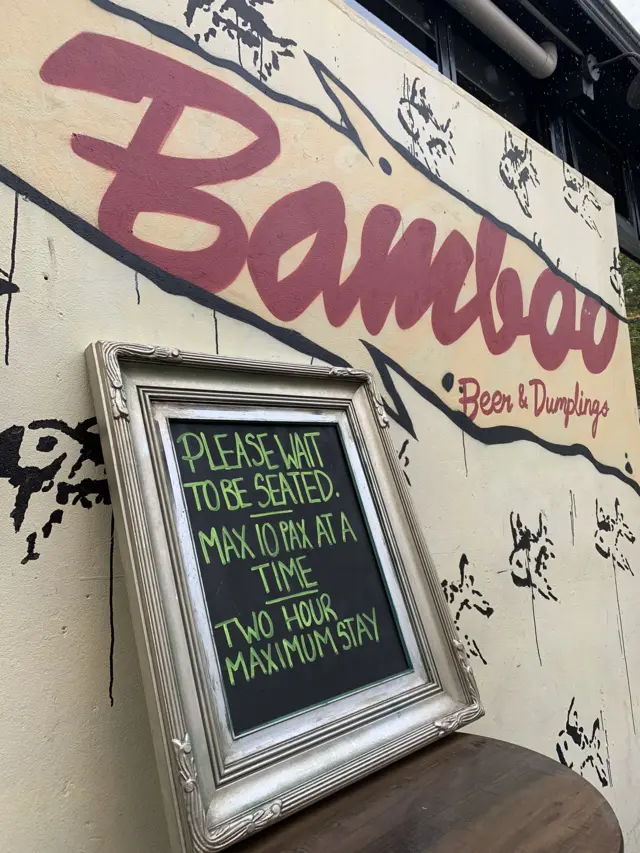 Bamboo
Beer & Dumplings
PLEASE WAIT
TO BE SEATED.
MAX 10 PAX AT A
TIME
TWO HOUR
MAXIMUM STAY